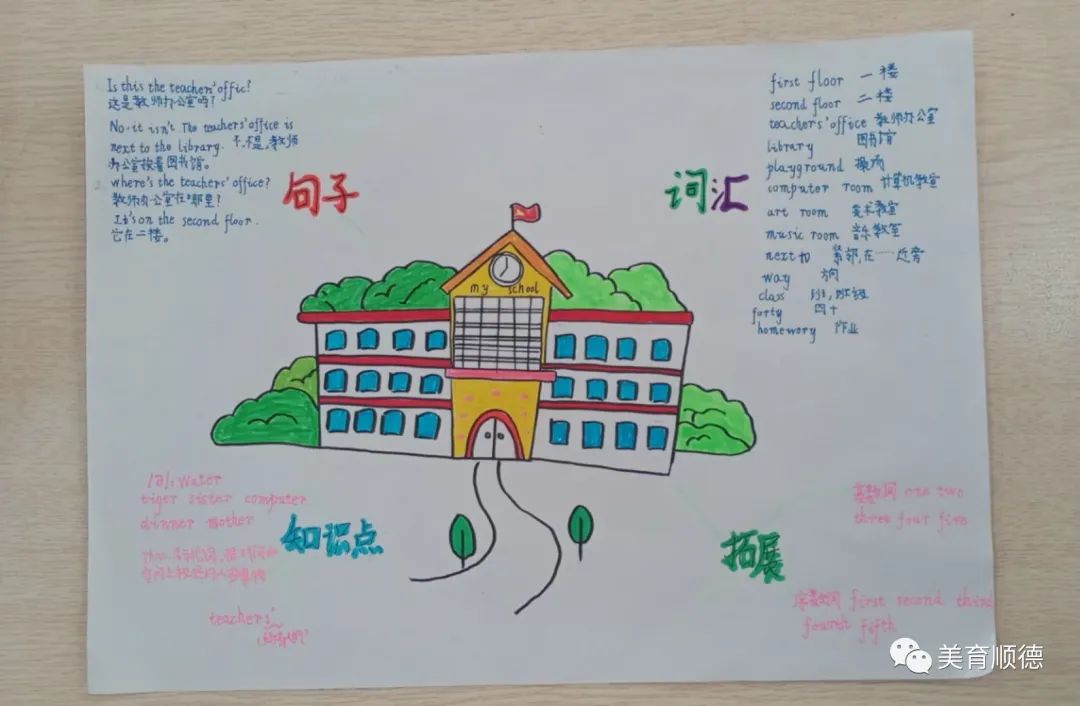 Is this the teachers' offic?
这是教师办公室吗?
No. it isn't The teachers' office is
next to the library. 不,不是,教师
办公室挨着图书馆。
where's the teachers' office?
教师办公室在哪里?
It's on the second floor.
它在二楼。
句子
词汇
first floor 一楼
second floor 二楼
teachers' office 教师办公室
library 图书馆
playground 操场
computer room 计算机教室
art room 美术教室
music room 音乐教室
next to 紧邻,在……近旁
way 方向
class 班,班级
forty 四十
homewory 作业
my school
/ə/: water
tiger sister computer
dinner mother
知识点
teachers'
拓展
基数词 one two
three four five
序数词 first second third
fourth fifth
美育顺德